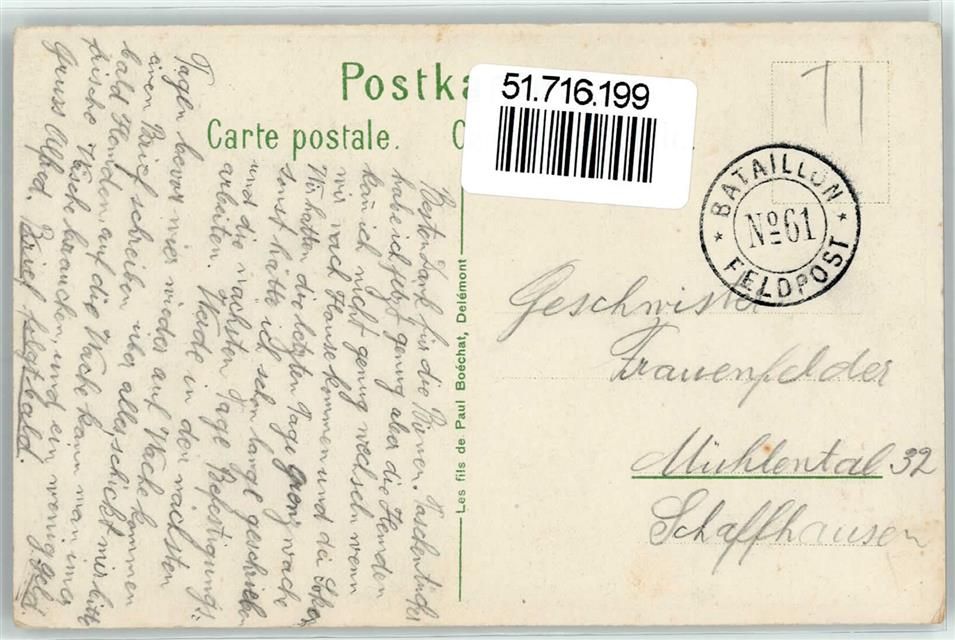 Postka
Carte postale. C
51.716.199
BATAILLON
No 61
FELDPOST
Les fils de Paul Boéchat, Delémont
Geschwister
Frauenfelder
Mühlental 32
Schaffhausen
Besten Dank für die Birnen. Taschentücher
habe ich jetzt genug aber die Hemden
kann ich nicht genug wechseln wenn
wir nach Hause kommen und die Socken
Wir hatten die letzten Tage Grenzwache
sonst hätte ich schon lange geschrieben
und die nächsten Tage Befestigungs-
arbeiten. Werde in den nächsten
Tagen bevor wir wieder auf Wache kommen
einen Brief schreiben über alles schickt mir bitte
bald Hemden, auf die Wache kann man immer
frische Wäsche brauchen, und ein wenig Geld
Gruss Alfred. Brief folgt bald.